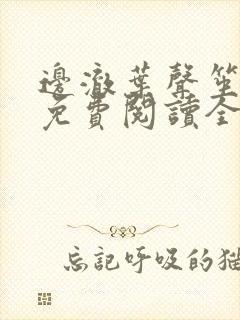 邊澈葉聲笙
免費閱讀全
忘記呼吸的貓